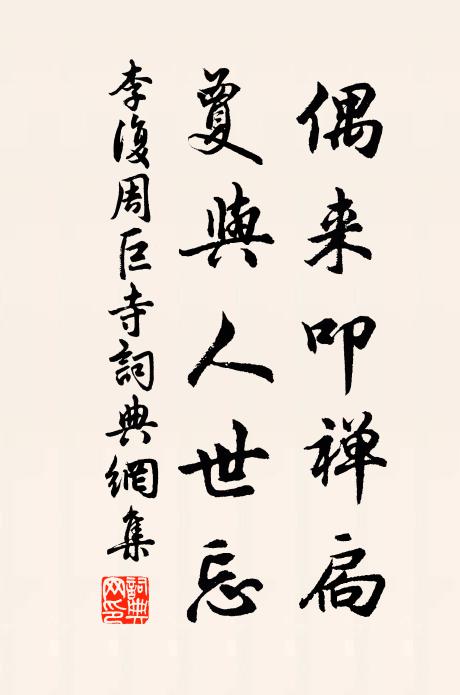 偶来叩禅扃
夐與人世忘
李復周巨寺詞典網集
詞典网印